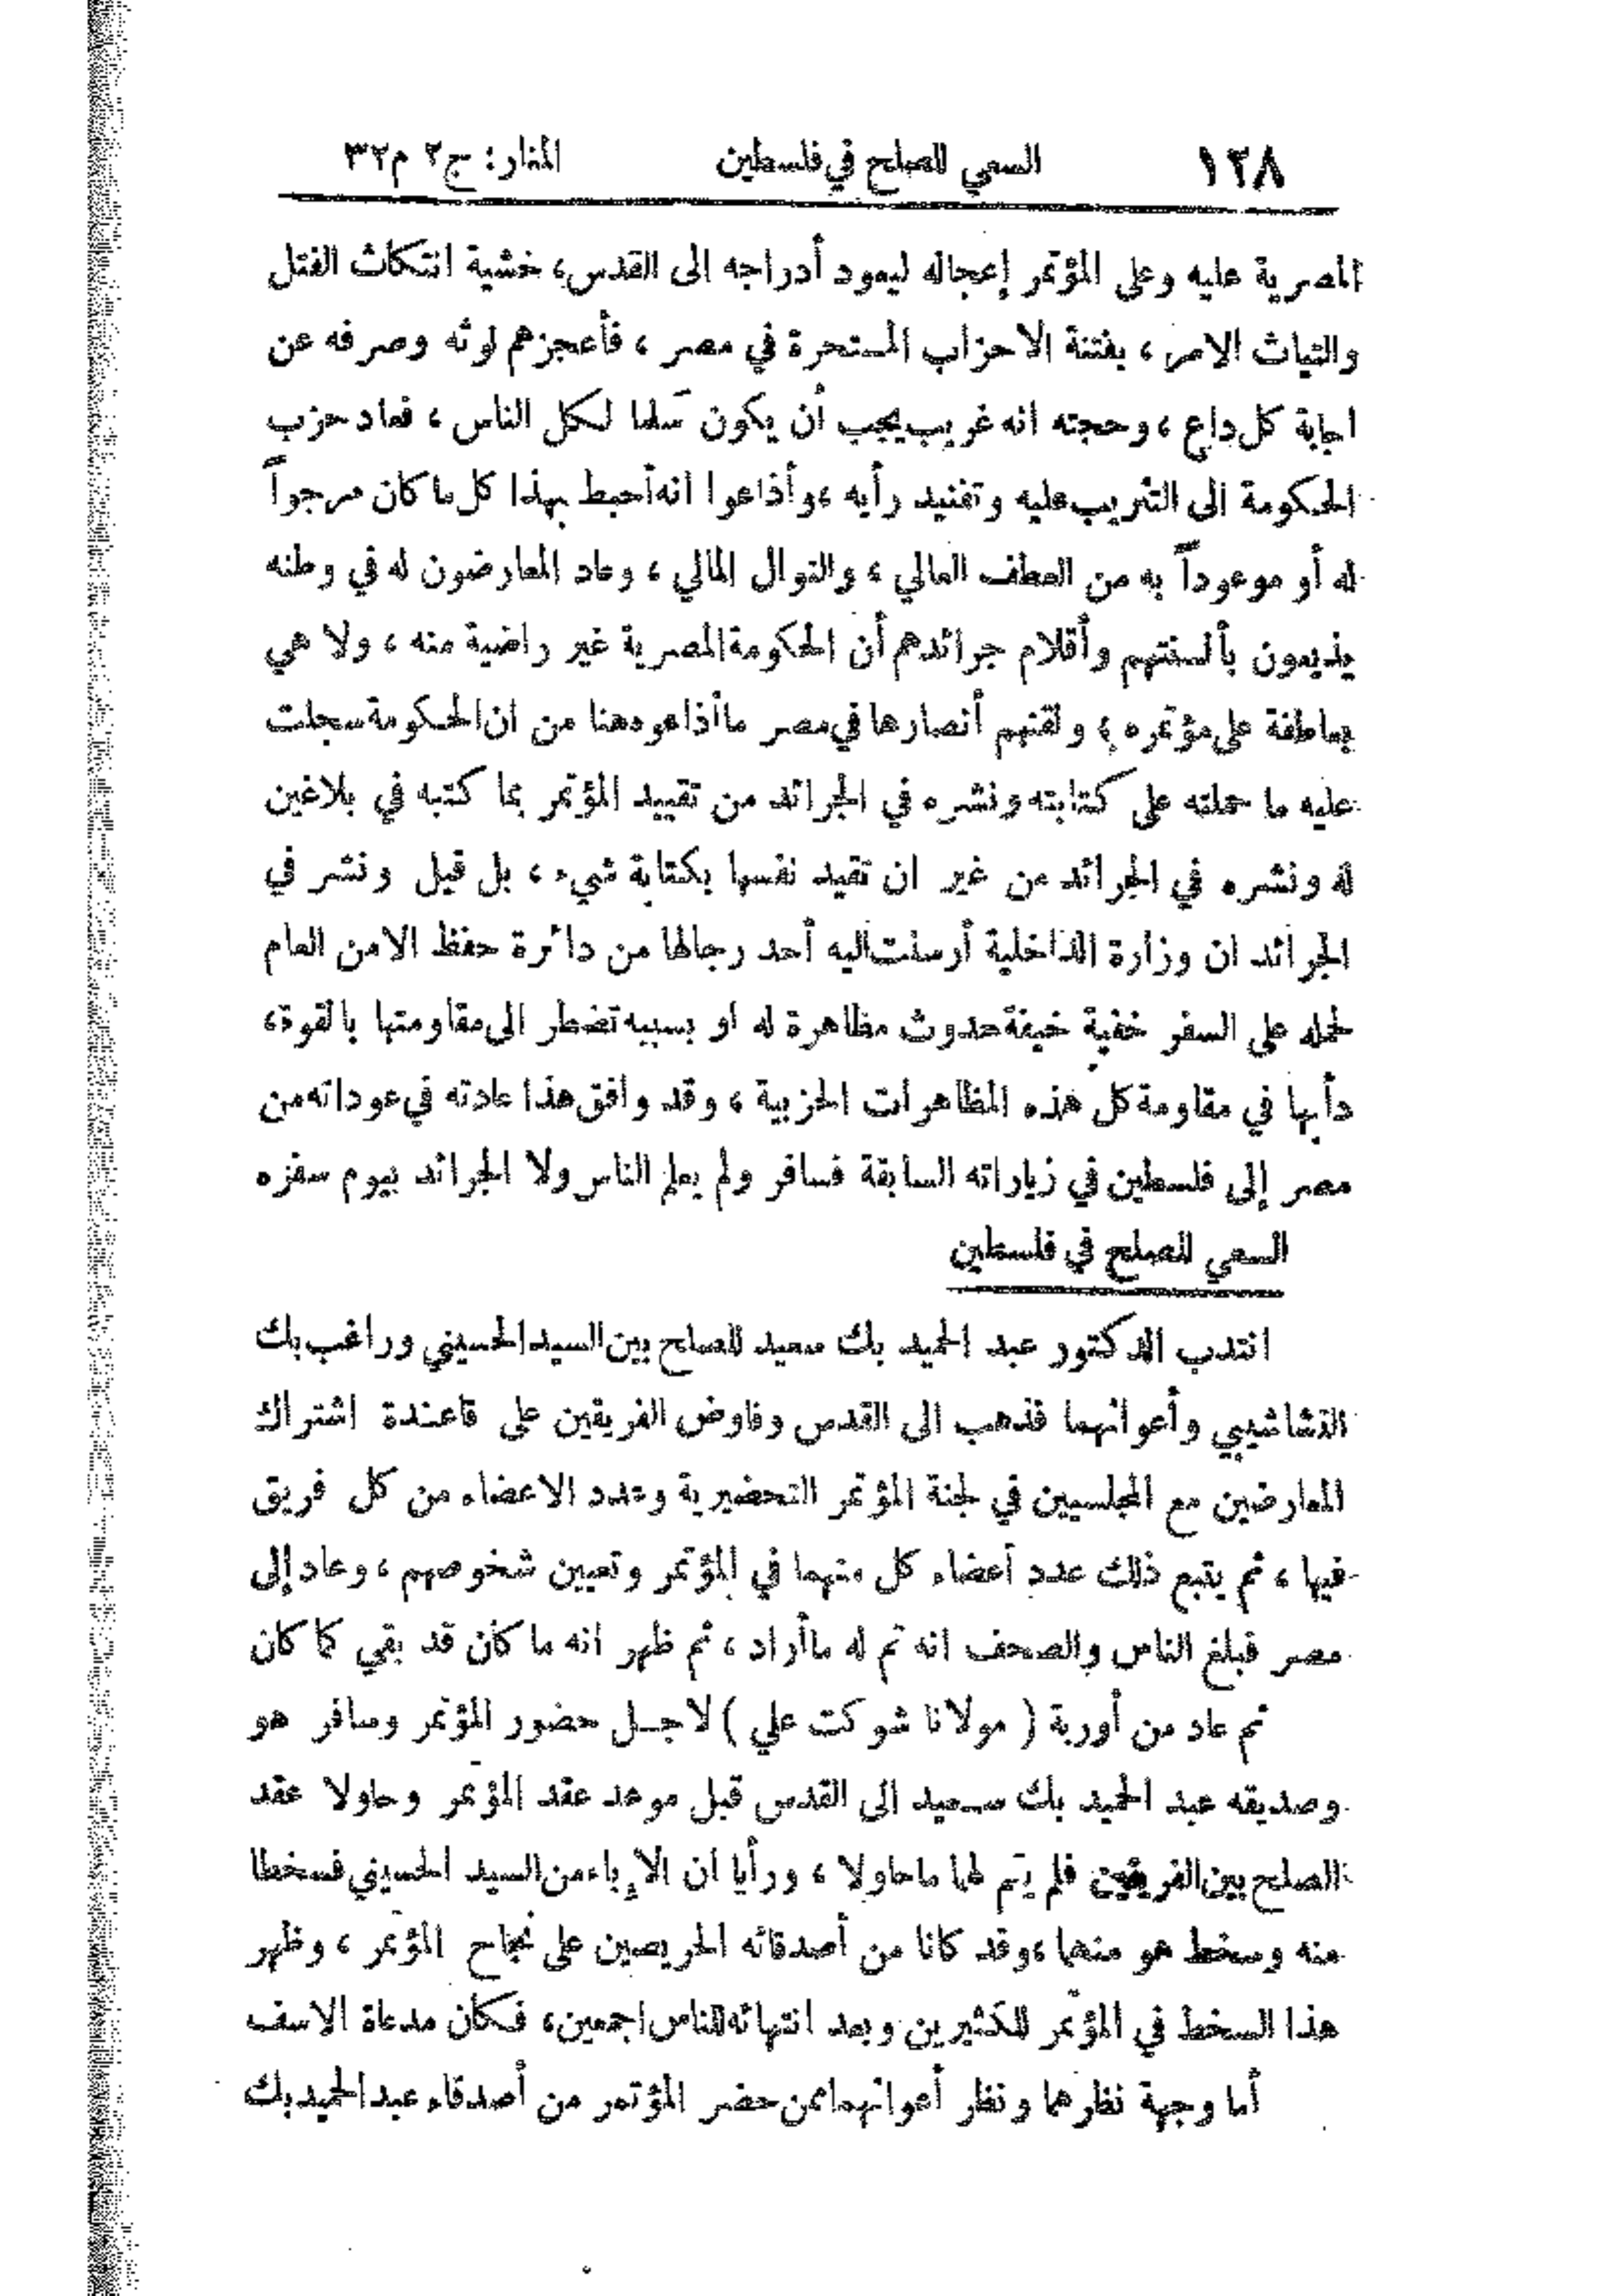 ١٢٨ السعي للصلح في فلسطين المنار: ج٢ م٣٢
المصرية عليه وعلى المؤتمر إعجاله ليعود أدراجه الى القدس، خشية انتكاث الفتل
والتياث الامر، بفتنة الاحزاب المستحرة في مصر، فأعجزهم لوثه وصرفه عن
اجابة كل داع، وحجته انه غريب يجب أن يكون سَلما لكل الناس، فعاد حزب
الحكومة الى التثريب عليه وتفنيد رأيه، وأذاعوا انه أحبط بهذا كل ما كان مرجواً
له أو موعوداً به من العطف العالي، والنوال المالي، وعاد المعارضون له في وطنه
يذيعون بألسنتهم وأقلام جرائدهم أن الحكومة المصرية غير راضية منه، ولا هي
بعاطفة على مؤتمره، ولقنهم أنصارها في مصر ما أذاعوه هنا من ان الحكومة سجلت
عليه ما حملته على كتابته ونشره في الجرائد من تقييد المؤتمر بما كتبه في بلاغين
له ونشره في الجرائد من غير ان تقيد نفسها بكتابة شيء، بل قيل ونشر في
الجرائد ان وزارة الداخلية أرسلت اليه أحد رجالها من دائرة حفظ الامن العام
لحمله على السفر خفية خيفة حدوث مظاهرة له او بسببه تضطر الى مقاومتها بالقوة،
دأبها في مقاومة كل هذه المظاهرات الحزبية، وقد وافق هذا عادته في عوداته من
مصر إلى فلسطين في زياراته السابقة فسافر ولم يعلم الناس ولا الجرائد بيوم سفره
السعي للصلح في فلسطين
انتدب الدكتور عبد الحميد بك سعيد للصلح بين السيد الحسيني وراغب بك
النشاشيبي وأعوانهما فذهب الى القدس وفاوض الفريقين على قاعدة اشتراك
المعارضين مع المجلسيين في لجنة المؤتمر التحضيرية وعدد الاعضاء من كل فريق
فيها، ثم يتبع ذلك عدد أعضاء كل منهما في المؤتمر وتعيين شخوصهم، وعاد إلى
مصر فبلغ الناس والصحف انه تم له ما أراد، ثم ظهر انه ما كان قد بقي كما كان
ثم عاد من أوربة (مولانا شوكت علي) لاجل حضور المؤتمر وسافر هو
وصديقه عبد الحميد بك سعيد الى القدس قبل موعد عقد المؤتمر وحاولا عقد
الصلح بين الفريقين فلم يتم لهما ما حاولا، ورأيا ان الإباء من السيد الحسيني فسخطا
منه وسخط هو منهما، وقد كانا من أصدقائه الحريصين على نجاح المؤتمر، وظهر
هذا السخط في المؤتمر للكثيرين وبعد انتهائه للناس اجمعين، فكان مدعاة الاسف
أما وجهة نظرهما ونظر أعوانهما ممن حضر المؤتمر من أصدقاء عبد الحميد بك